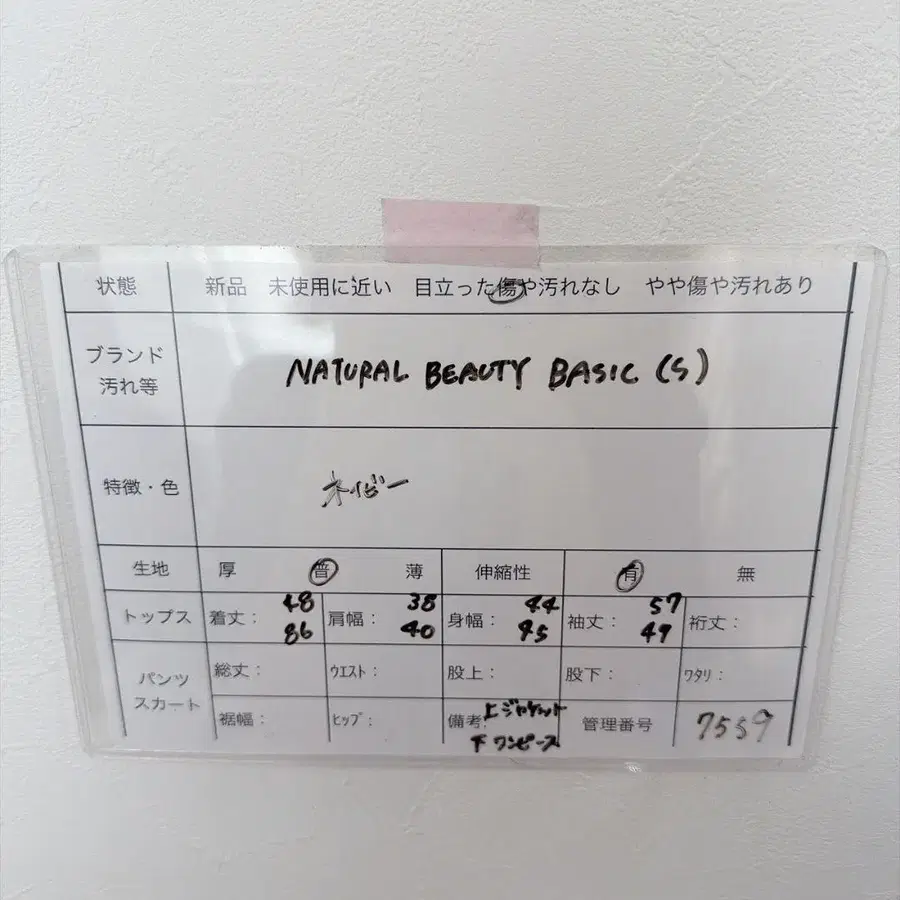 状態 新品 未使用に近い 目立った傷や汚れなし やや傷や汚れあり
ブランド
汚れ等
NATURAL BEAUTY BASIC (S)
特徴・色 ネイビー
生地 厚 普 薄 伸縮性 有 無
トップス 着丈: 48 86 肩幅: 38 40 身幅: 44 45 袖丈: 57 49 裄丈:
パンツ
スカート
総丈: ウエスト: 股上: 股下: ワタリ:
裾幅: ヒップ: 備考: 上ジャケット 下ワンピース 管理番号 7559